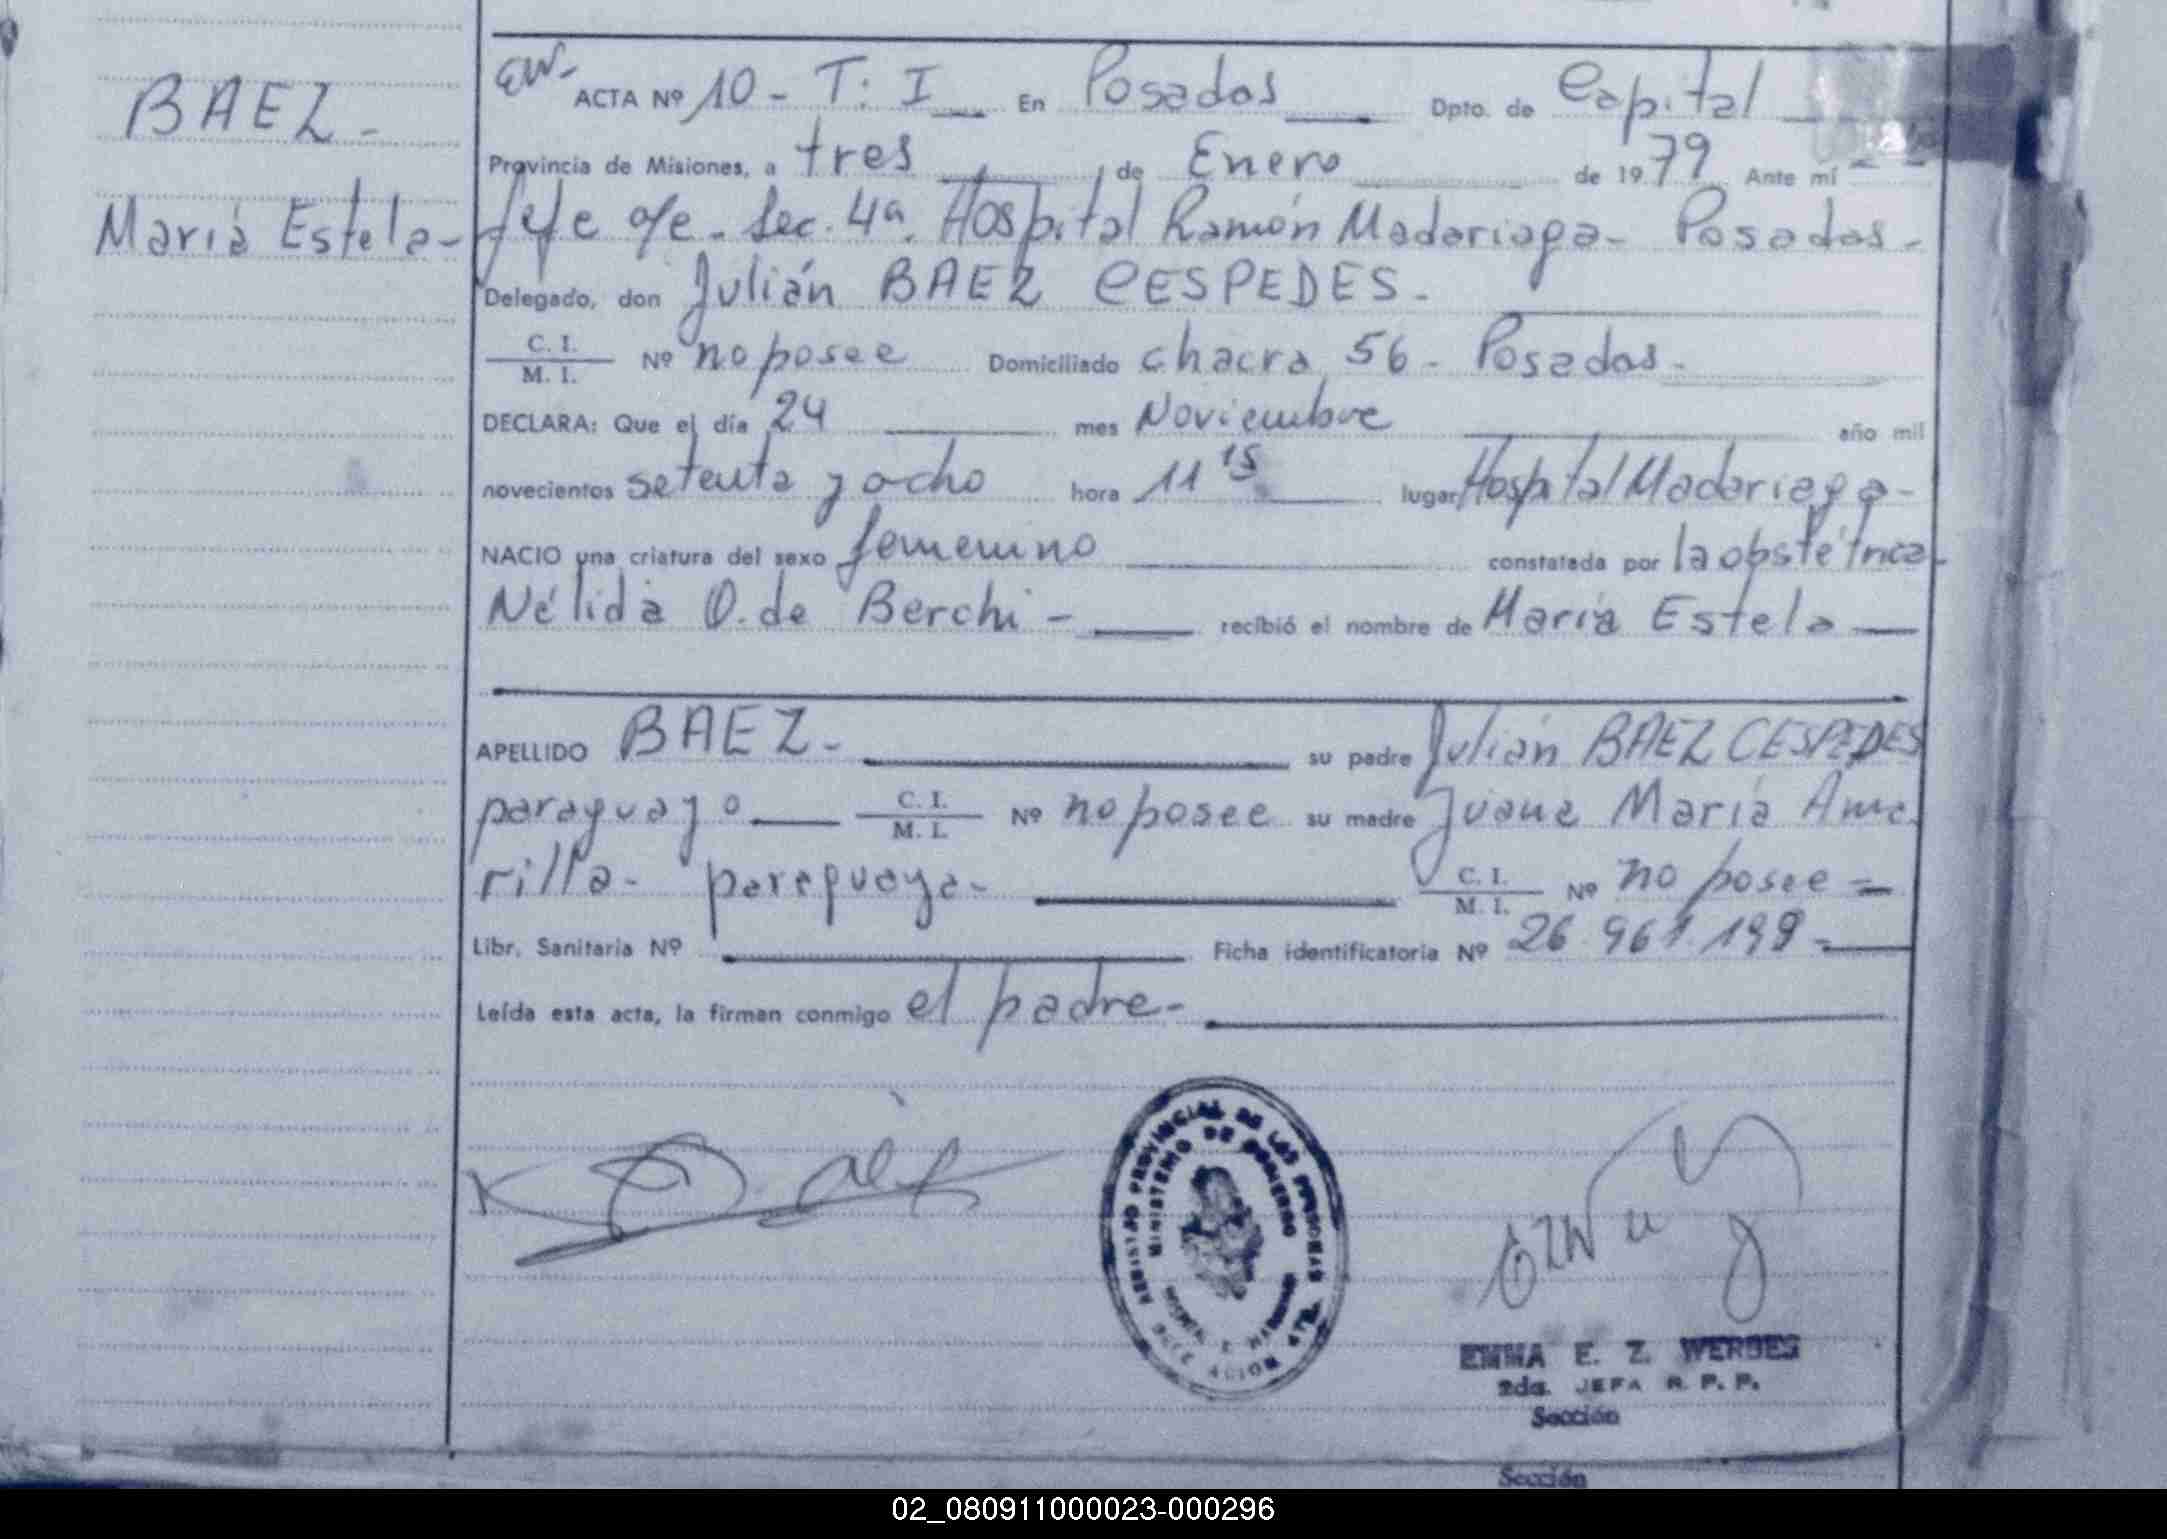 BAEZ-
María Estela-
EW-
ACTA Nº 10 - T: I En Posadas Dpto. de Capital
Provincia de Misiones, a tres de Enero de 1979 Ante mí
Jefe o/e - Sec. 4ª. Hospital Ramón Madariaga - Posadas -
Delegado, don Julián BAEZ CESPEDES -
C. I.
M. I.
Nº no posee Domiciliado chacra 56 - Posadas -
DECLARA: Que el día 24 mes Noviembre año mil
novecientos setenta y ocho hora 11 15 lugar Hospital Madariaga -
NACIO una criatura del sexo femenino constatada por la obstétrica
Nélida O. de Berchi - recibió el nombre de María Estela
APELLIDO BAEZ - su padre Julián BAEZ CESPEDES
paraguayo C. I. M. I. Nº no posee su madre Juana María Ama
rilla - paraguaya - C. I. M. I. Nº no posee -
Libr. Sanitaria Nº Ficha identificatoria Nº 26.961.199 -
Leída esta acta, la firman conmigo el padre -
REGISTRO PROVINCIAL DE LAS PERSONAS
MINISTERIO DE GOBIERNO
EMMA E. Z. WERBES
2da. JEFA R. P. P.
Sección
Sección
02_080911000023-000296